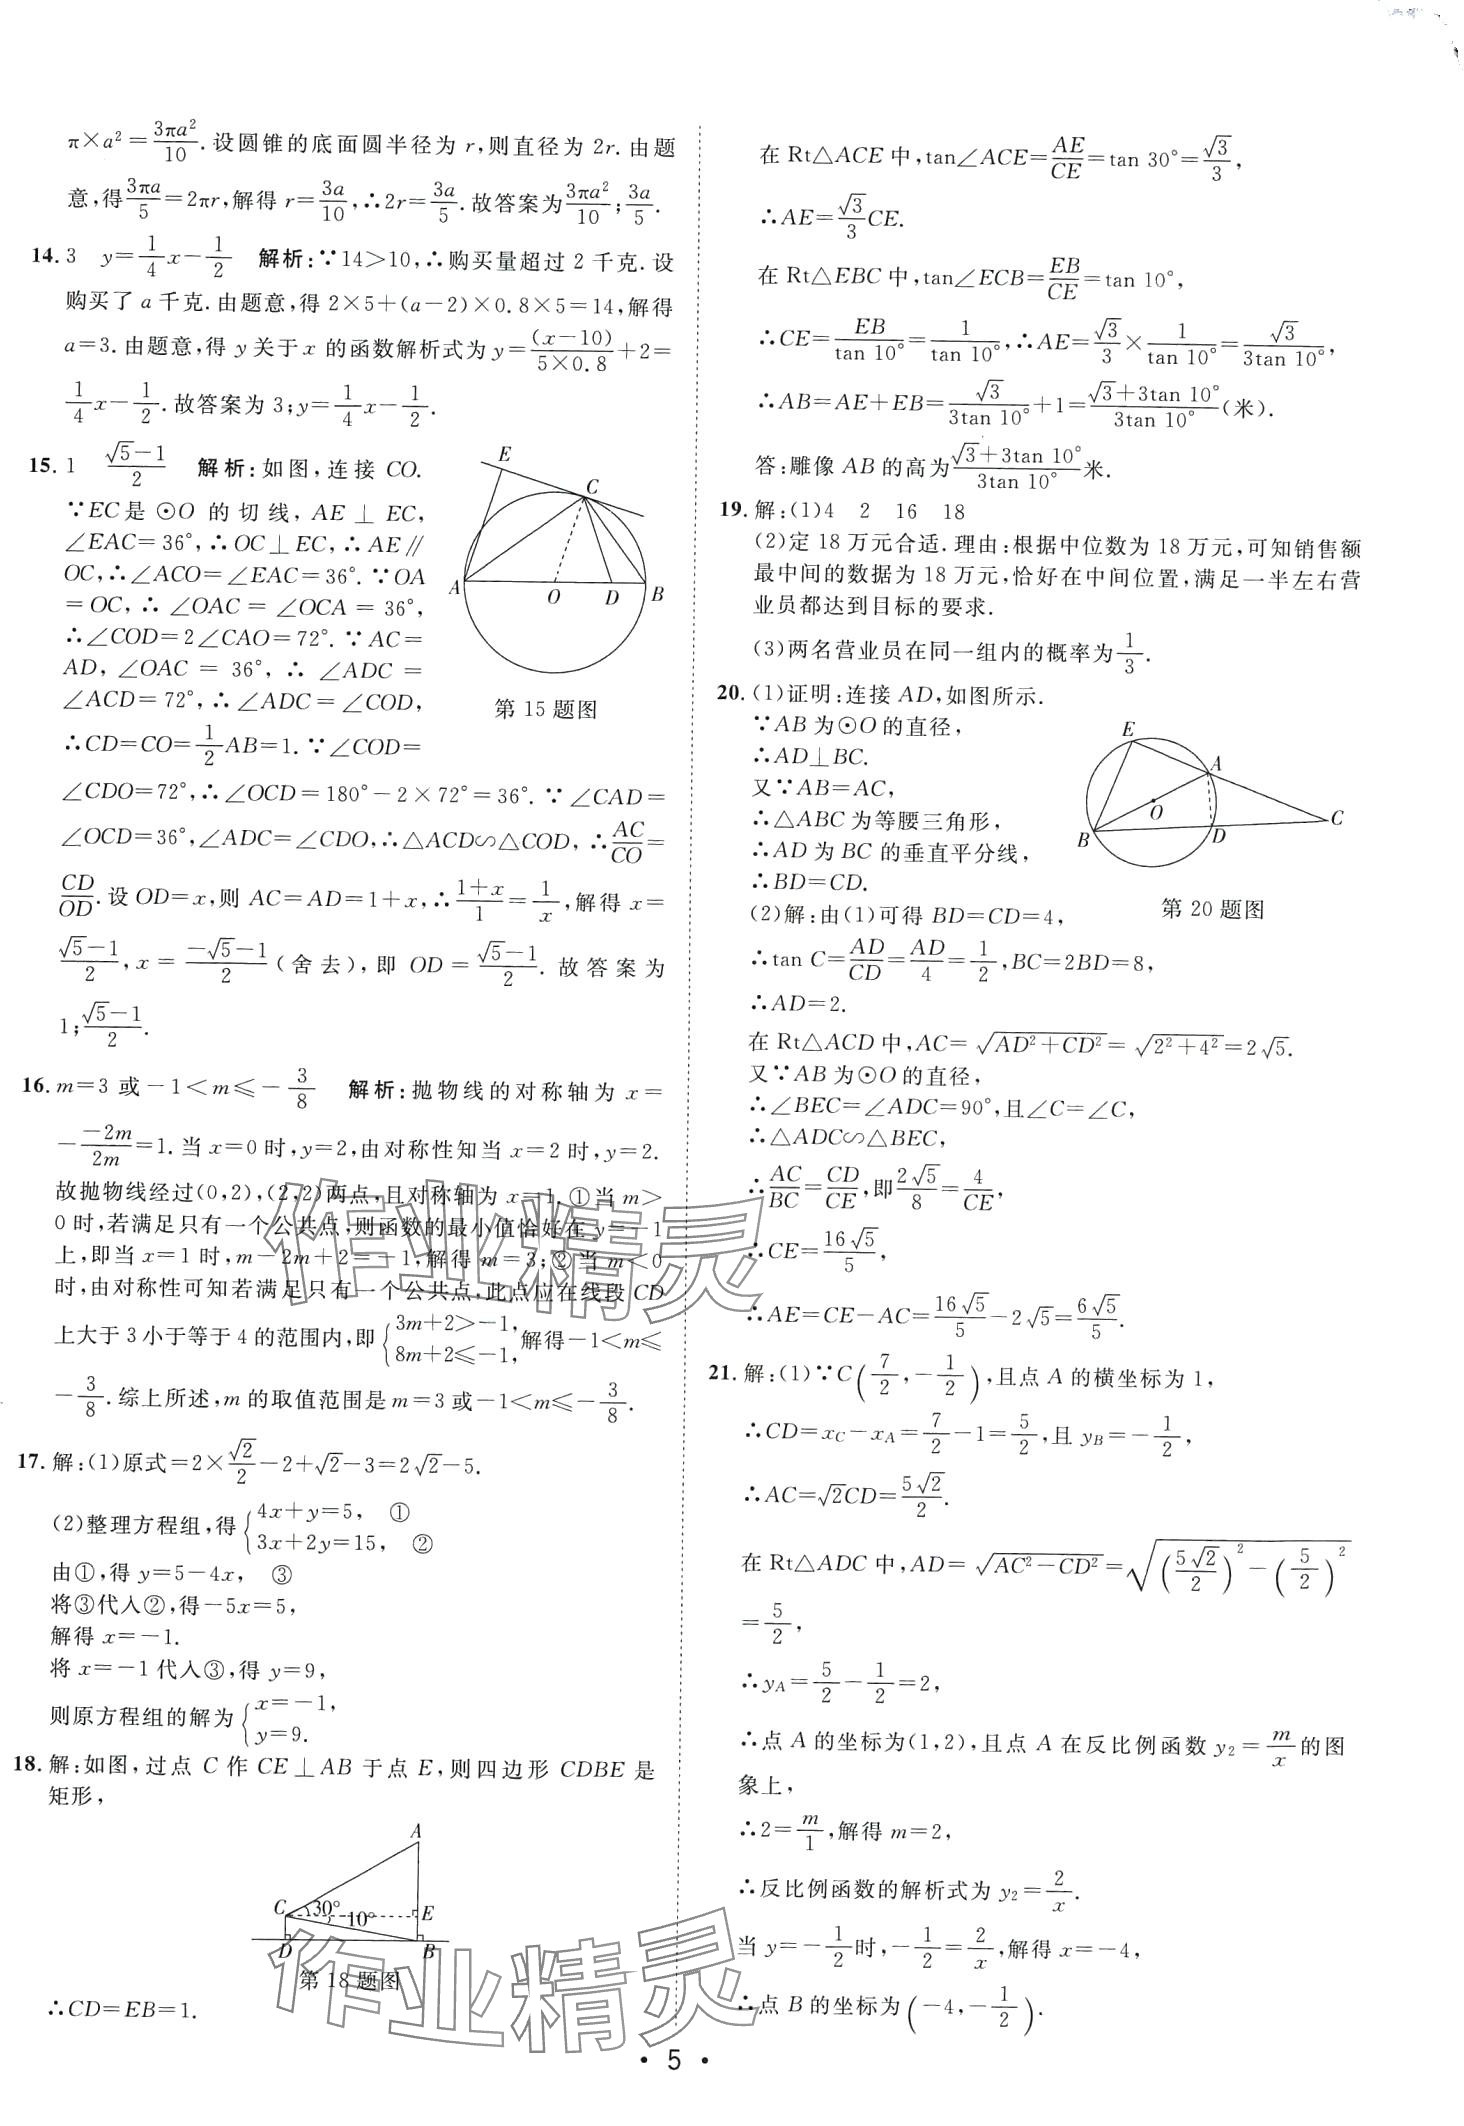 π×a²=3πa²/10.设圆锥的底面圆半径为 r,则直径为 2r.由题
意,得3πa/5=2πr,解得 r=3a/10,∴2r=3a/5.故答案为3πa²/10;3a/5.
14. 3 y=1/4x-1/2 解析:∵14>10,∴购买量超过 2 千克.设
购买了 a 千克.由题意,得 2×5+(a-2)×0.8×5=14,解得
a=3.由题意,得 y 关于 x 的函数解析式为 y=(x-10)/(5×0.8)+2=
1/4x-1/2.故答案为 3;y=1/4x-1/2.
15. 1 (√5-1)/2 解析:如图,连接 CO.
∵EC是 ⊙O 的切线,AE⊥EC,
∠EAC=36°,∴OC⊥EC,∴AE∥
OC,∴∠ACO=∠EAC=36°.∵OA
=OC,∴∠OAC=∠OCA=36°,
∴∠COD=2∠CAO=72°.∵AC=
AD,∠OAC=36°,∴∠ADC=
∠ACD=72°,∴∠ADC=∠COD,
∴CD=CO=1/2AB=1.∵∠COD=
E
C
A
O
D
B
第 15 题图
∠CDO=72°,∴∠OCD=180°-2×72°=36°.∵∠CAD=
∠OCD=36°,∠ADC=∠CDO,∴△ACD∽△COD,∴AC/CO=
CD/OD.设 OD=x,则 AC=AD=1+x,∴(1+x)/1=1/x,解得 x=
(√5-1)/2,x=(-√5-1)/2(舍去),即 OD=(√5-1)/2.故答案为
1;(√5-1)/2.
16. m=3 或-1<m≤-3/8 解析:抛物线的对称轴为 x=
-(-2m)/2m=1.当 x=0 时,y=2,由对称性知当 x=2 时,y=2.
故抛物线经过(0,2),(2,2)两点,且对称轴为 x=1.①当 m>
0 时,若满足只有一个公共点,则函数的最小值恰好在 y=-1
上,即当 x=1 时,m-2m+2=-1,解得 m=3;②当 m<0
时,由对称性可知若满足只有一个公共点,此点应在线段 CD
上大于 3 小于等于 4 的范围内,即{3m+2>-1, 8m+2≤-1,解得-1<m≤
-3/8.综上所述,m 的取值范围是 m=3 或-1<m≤-3/8.
17. 解:(1)原式=2×√2/2-2+√2-3=2√2-5.
(2)整理方程组,得{4x+y=5, ① 3x+2y=15, ②
由①,得 y=5-4x, ③
将③代入②,得-5x=5,
解得 x=-1.
将 x=-1代入③,得 y=9,
则原方程组的解为{x=-1, y=9.
18. 解:如图,过点 C 作 CE⊥AB 于点 E,则四边形 CDBE 是
矩形,
A
C
30°
10°
E
D
B
第 18 题图
∴CD=EB=1.
在 Rt△ACE 中,tan∠ACE=AE/CE=tan 30°=√3/3,
∴AE=√3/3CE.
在 Rt△EBC 中,tan∠ECB=EB/CE=tan 10°,
∴CE=EB/tan 10°=1/tan 10°,∴AE=√3/3×1/tan 10°=√3/3tan 10°,
∴AB=AE+EB=√3/3tan 10°+1=(√3+3tan 10°)/3tan 10°(米).
答:雕像 AB 的高为(√3+3tan 10°)/3tan 10°米.
19. 解:(1)4 2 16 18
(2)定 18 万元合适.理由:根据中位数为 18 万元,可知销售额
最中间的数据为 18 万元,恰好在中间位置,满足一半左右营
业员都达到目标的要求.
(3)两名营业员在同一组内的概率为1/3.
20. (1)证明:连接 AD,如图所示.
∵AB 为⊙O 的直径,
∴AD⊥BC.
又∵AB=AC,
∴△ABC 为等腰三角形,
∴AD 为 BC 的垂直平分线,
∴BD=CD.
(2)解:由(1)可得 BD=CD=4,
E
A
O
B
D
C
第 20 题图
∴tan C=AD/CD=AD/4=1/2,BC=2BD=8,
∴AD=2.
在 Rt△ACD 中,AC=√(AD²+CD²)=√(2²+4²)=2√5.
又∵AB 为⊙O 的直径,
∴∠BEC=∠ADC=90°,且∠C=∠C,
∴△ADC∽△BEC,
∴AC/BC=CD/CE,即2√5/8=4/CE,
∴CE=16√5/5,
∴AE=CE-AC=16√5/5-2√5=6√5/5.
21. 解:(1)∵C(7/2,-1/2),且点 A 的横坐标为 1,
∴CD=x_C-x_A=7/2-1=5/2,且 y_B=-1/2,
∴AC=√2CD=5√2/2.
在 Rt△ADC 中,AD=√(AC²-CD²)=√((5√2/2)²-(5/2)²)
=5/2,
∴y_A=5/2-1/2=2,
∴点 A 的坐标为(1,2),且点 A 在反比例函数 y₂=m/x的图
象上,
∴2=m/1,解得 m=2,
∴反比例函数的解析式为 y₂=2/x.
当 y=-1/2时,-1/2=2/x,解得 x=-4,
∴点 B 的坐标为(-4,-1/2).
作业精灵
作业精灵
• 5 •